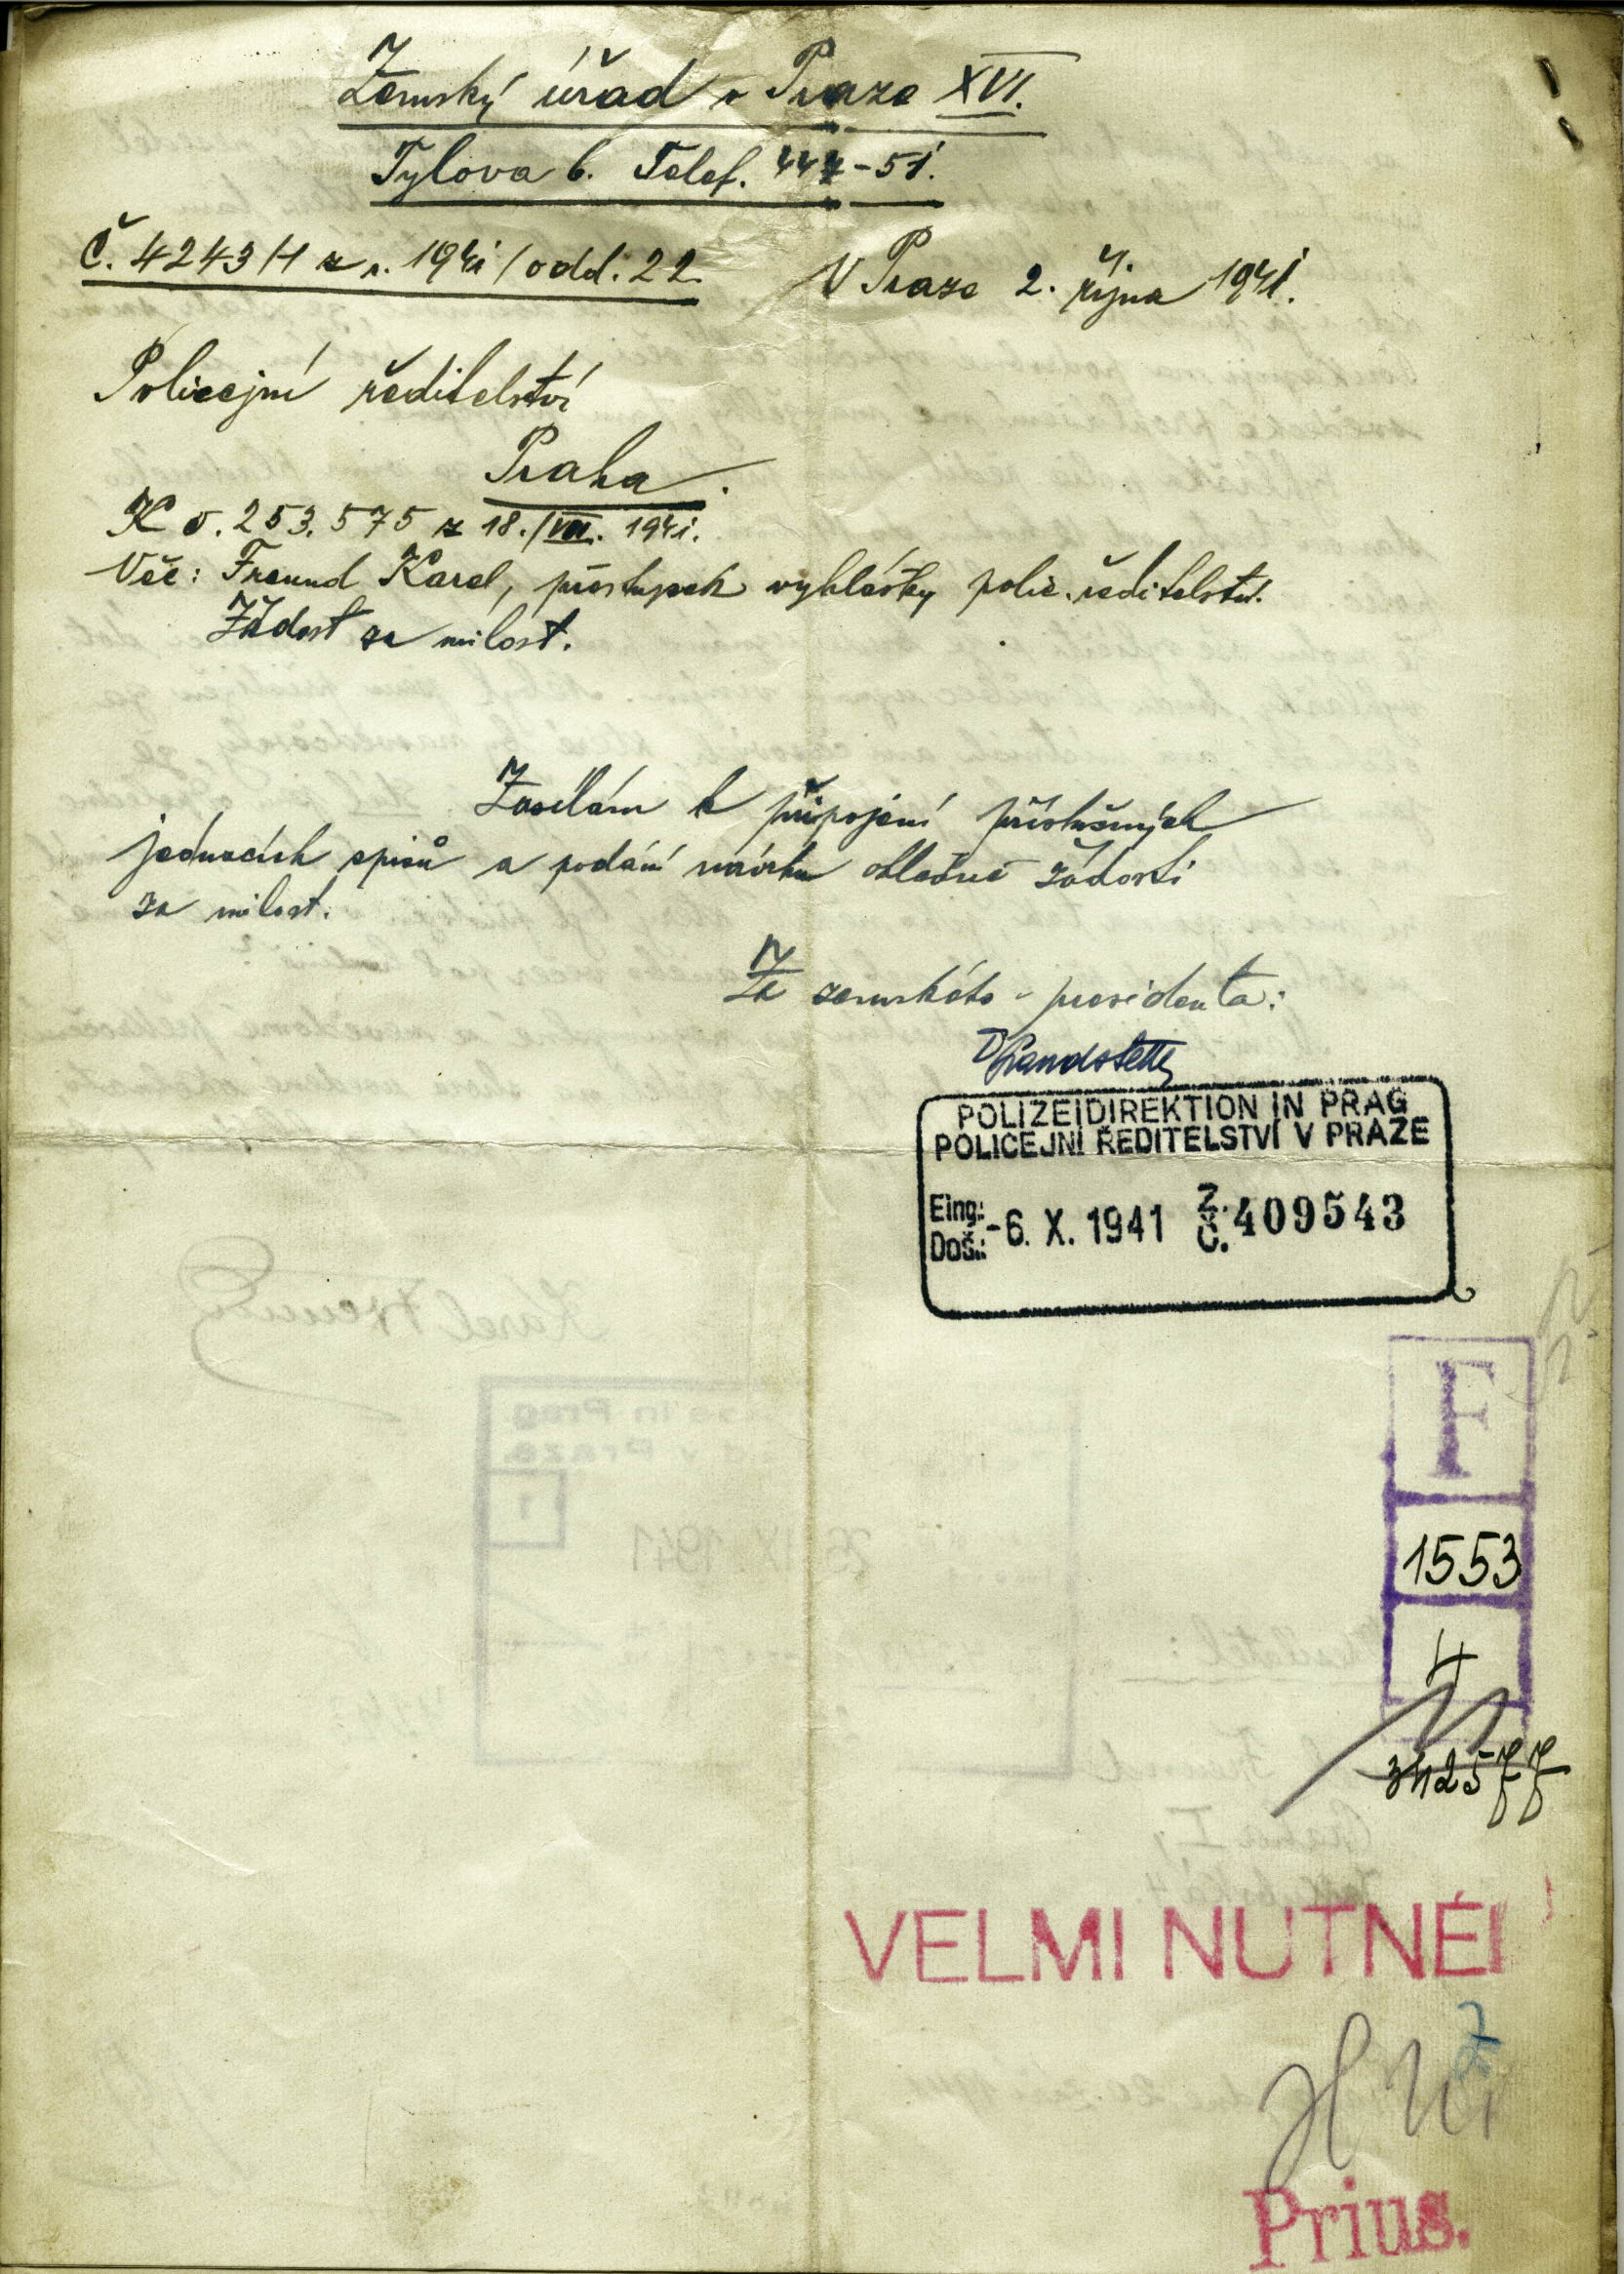 Zemský úřad v Praze XVI.
Tylova 6. Telef. 447-51.
Č. 4243/1 z r. 1941/odd. 22
V Praze 2. října 1941.
Policejní ředitelství
Praha.
K č. 253.575 z 18./VII. 1941.
Věc: Freund Karel, přestupek vyhlášky polic. ředitelství.
Žádost za milost.
Zasílám k připojení příslušných
jednacích spisů a podání návrhu ohledně žádosti
za milost.
Za zemského presidenta:
POLIZEIDIREKTION IN PRAG
POLICEJNÍ ŘEDITELSTVÍ V PRAZE
Eing: Doš.: -6. X. 1941 Z. Č. 409543
F
1553
4
342577
VELMI NUTNÉ!
Prius.